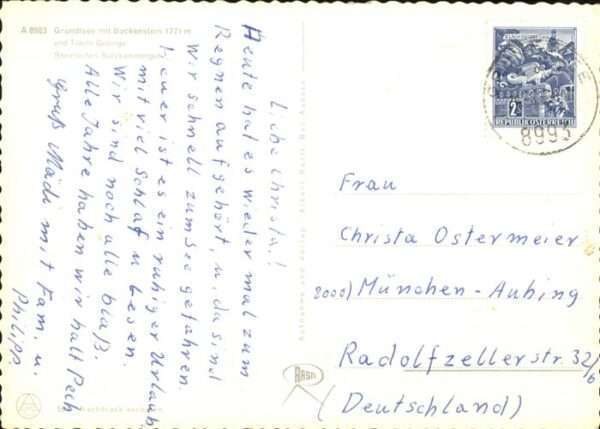 A 8903 Grundlsee mit Backenstein 1771 m
Liebe Christa!
Heute hat es wieder mal zum
Regnen aufgehört, u. da sind
Wir schnell zum See gefahren.
Heuer ist es ein ruhiger Urlaub
mit viel Schlaf u lesen.
Wir sind noch alle blaß.
Alle Jahre haben wir halt Pech
Gruß Mädi mit Fam. u.
Philipp
2 S
REPUBLIK ÖSTERREICH
8993
Frau
Christa Ostermeier
8000) München-Aubing
Radolfzellerstr 32/6
(Deutschland)